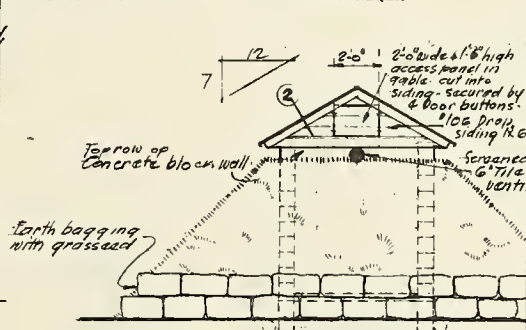 12
7
2'-0"
2'-0" wide & 1'-6" high
access panel in
gable - cut into
siding - secured by
4 Door buttons
2
#106 Drop
siding
Top row of
Concrete block wall
Screened
6" Tile
venti
Earth bagging
with grasseed